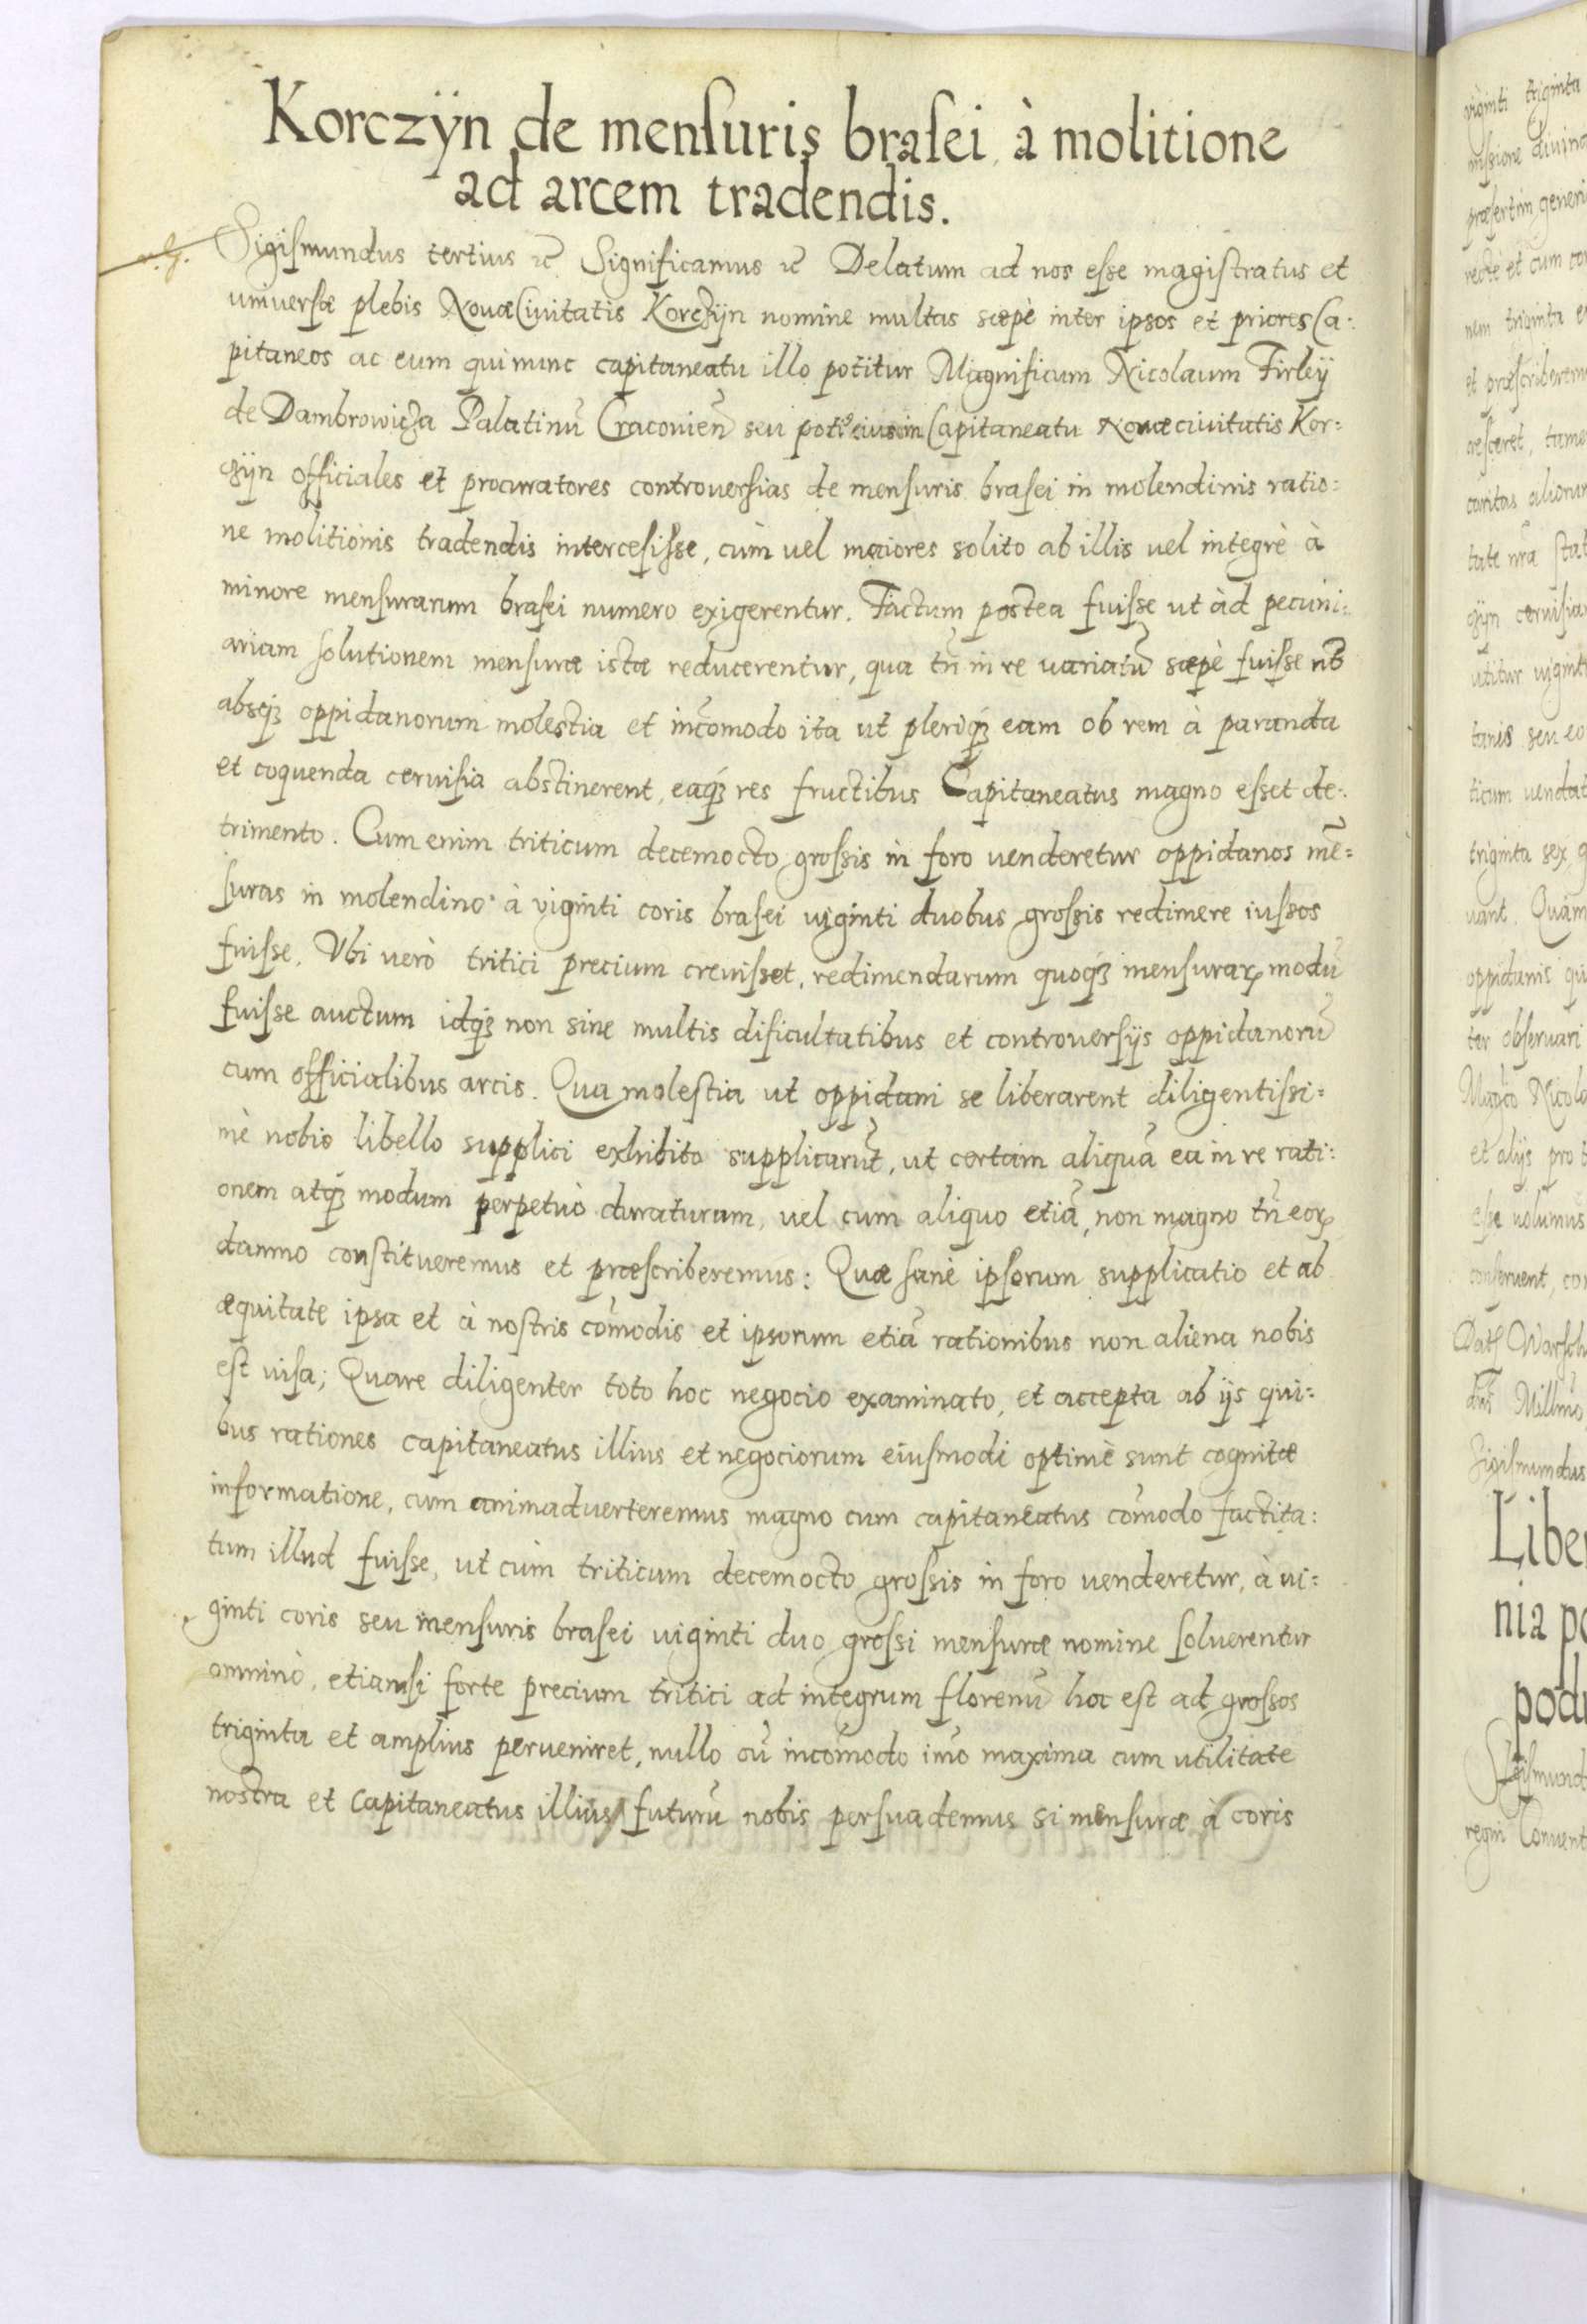 Korczÿn de mensuris brasei à molitione
ad arcem tradendis.
Sigismundus tertius Significamus Delatum ad nos esse magistratus et
universæ plebis Novæ Civitatis Korczÿn nomine multas sæpè inter ipsos et priores Ca:
pitaneos ac eum qui nunc capitaneatu illo potitur Magnificum Nicolaum Firleÿ
de Dambrowicza Palatinũ Cracovieñ seu poti⁹ eius in Capitaneatu Novæ civitatis Kor:
czÿn officiales et procuratores controversias de mensuris brasei in molendinis ratio:
ne molitionis tradendis intercesisse, cùm vel maiores solito ab illis vel integrè à
minore mensurarum brasei numero exigerentur. Factum postea fuisse ut ad pecuni:
ariam solutionem mensuræ istæ reducerentur, qua tñ in re variatũ sæpè fuisse nõ
absq́ꝫ oppidanorum molestia et incõmodo ita ut pleriq́ꝫ eam ob rem à paranda
et coquenda cervisia abstinerent, eaq́ꝫ res fructibus Capitaneatus magno esset de:
trimento. Cum enim triticum decemocto grossis in foro venderetur oppidanos mẽ=
suras in molendino à viginti coris brasei viginti duobus grossis redimere iussos
fuisse. Vbi verò tritici precium crevisset, redimendarum quoq́ꝫ mensuraꝝ modũ
fuisse auctum idq́ꝫ non sine multis dificultatibus et controversijs oppidanorũ
cum officialibus arcis. Qua molestia ut oppidani se liberarent diligentissi=
mè nobis libello supplici exhibito supplicarũt, ut certam aliquã ea in re rati:
onem atq́ꝫ modum perpetuò duraturum, vel cum aliquo etiã, non magno tñ eoꝝ
damno constitueremus et præscriberemus: Quæ sanè ipsorum supplicatio et ab
æquitate ipsa et à nostris cõmodis et ipsorum etiã rationibus non aliena nobis
est visa; Quare diligenter toto hoc negocio examinato, et accepta ab ijs qui=
bus rationes capitaneatus illius et negociorum eiusmodi optimè sunt cognitæ
informatione, cum animadverteremus magno cum capitaneatus cõmodo factita:
tum illud fuisse, ut cùm triticum decemocto grossis in foro venderetur, à vi=
ginti coris seu mensuris brasei viginti duo grossi mensuræ nomine solverentur
omninò, etiamsi forte precium tritici ad integrum florenũ hoc est ad grossos
triginta et amplius perveniret, nullo cũ incõmodo imò maxima cum utilitate
nostra et capitaneatus illius futurũ nobis persuademus si mensuræ à coris
viginti triginta
nem triginta
et præscriberem
cresceret, tame
tate nrã stat
utitur viginti
tanis seu eo
ticum vendat
triginta sex g
vant. Quam
oppidanis qu
ter observari
et alijs pro
esse volumus
conservent, co
Sigismundus
Liber
nia po
podu
Sigismund
regni Convent